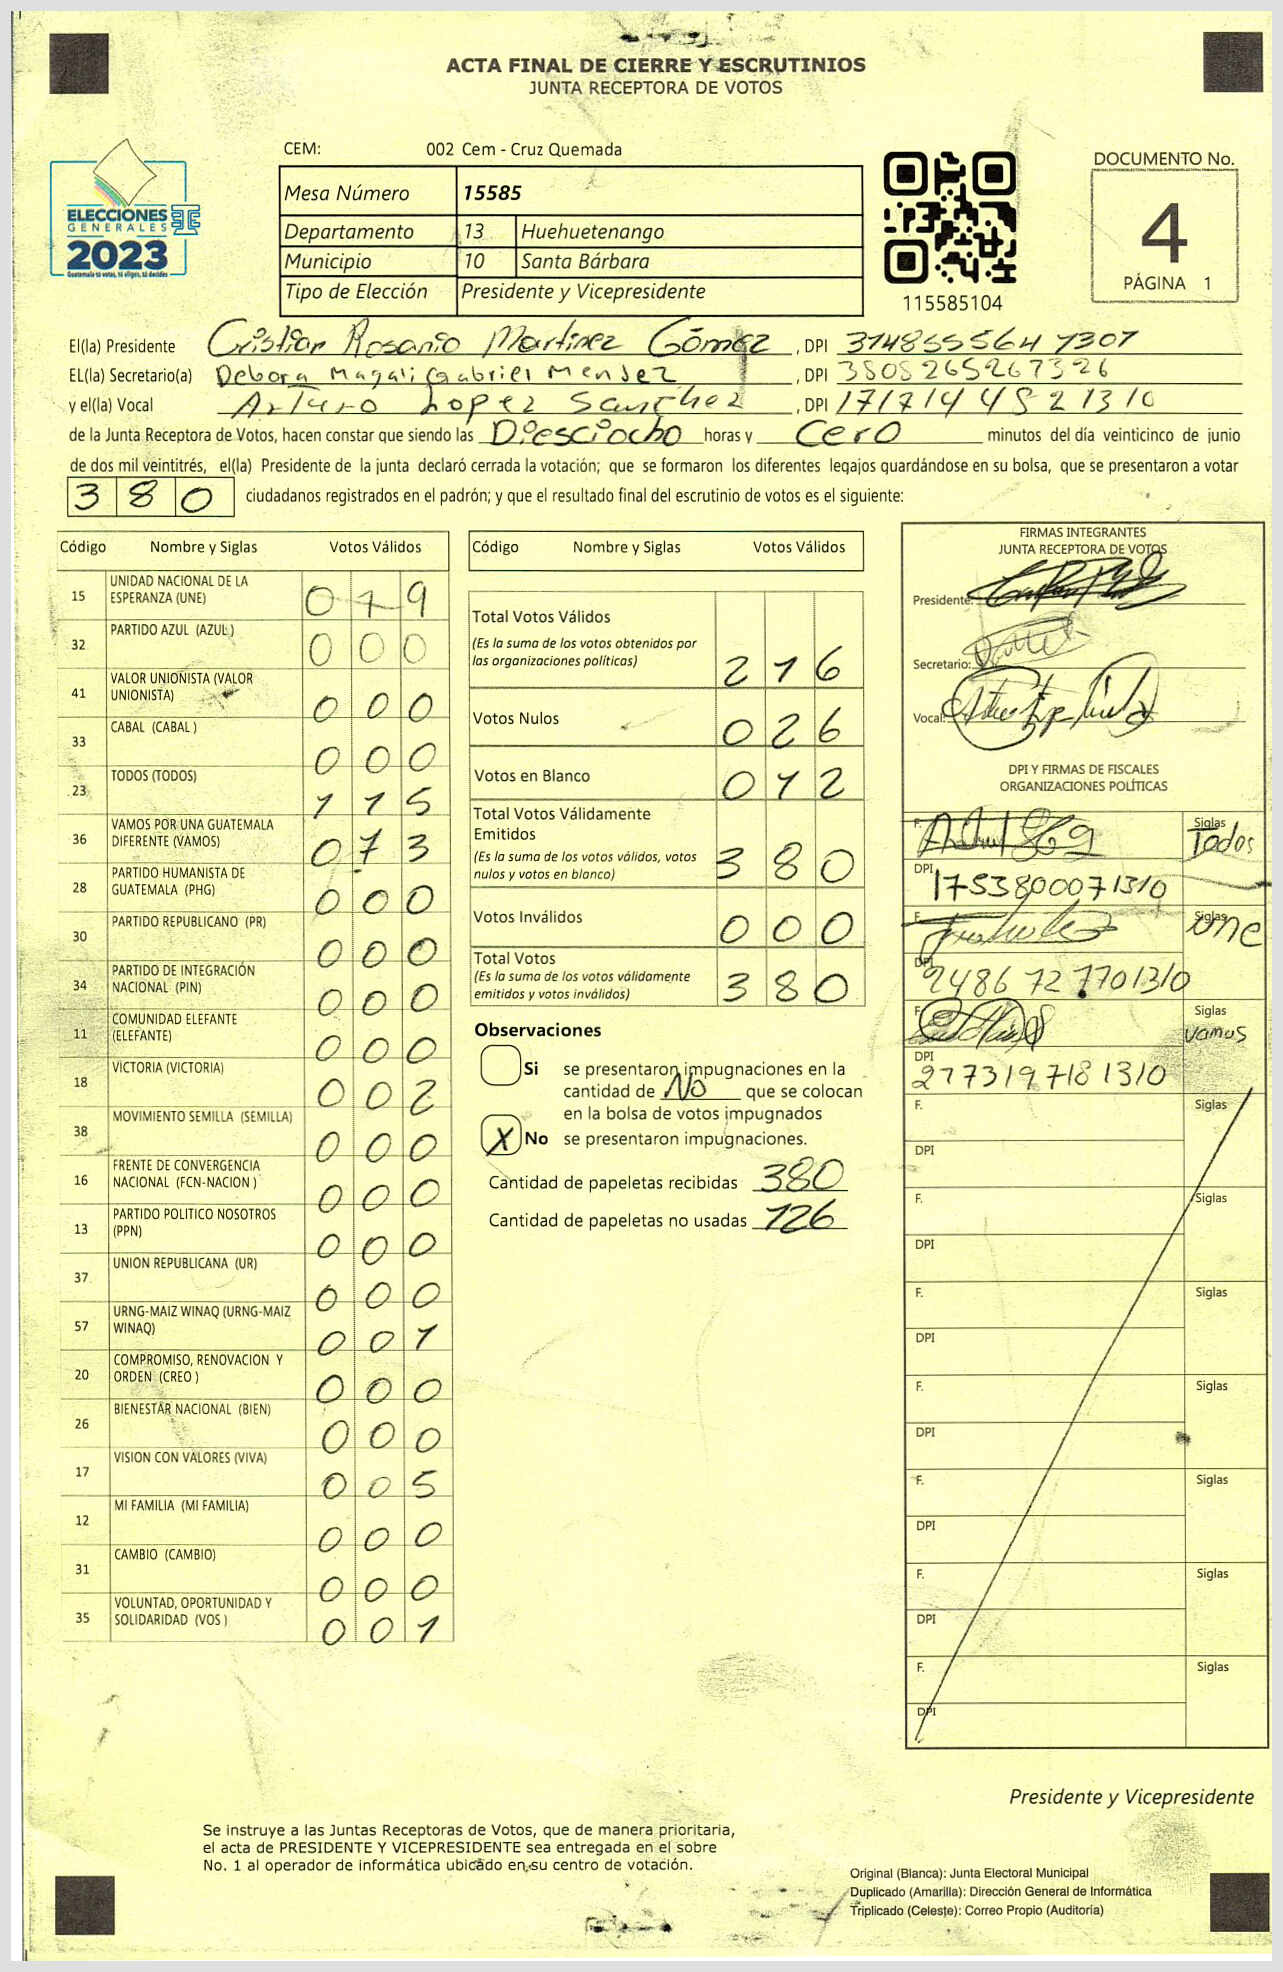 ACTA FINAL DE CIERRE Y ESCRUTINIOS
JUNTA RECEPTORA DE VOTOS
CEM: 002 Cem - Cruz Quemada
ELECCIONES
GENERALES
2023
Guatemala tú votas, tú eliges, tú decides
Mesa Número 15585
Departamento 13 Huehuetenango
Municipio 10 Santa Bárbara
Tipo de Elección Presidente y Vicepresidente
115585104
DOCUMENTO No.
4
PÁGINA 1
El(la) Presidente Cristian Rosanio Martinez Gómez , DPI 3148555641307
EL(la) Secretario(a) Debora Magali Gabriel Mendez , DPI 3808265267326
y el(la) Vocal Arturo Lopez Sanchez , DPI 1717144521310
de la Junta Receptora de Votos, hacen constar que siendo las Diesciocho horas y Cero minutos del día veinticinco de junio
de dos mil veintitrés, el(la) Presidente de la junta declaró cerrada la votación; que se formaron los diferentes legajos quardándose en su bolsa, que se presentaron a votar
380 ciudadanos registrados en el padrón; y que el resultado final del escrutinio de votos es el siguiente:
Código Nombre y Siglas Votos Válidos
15 UNIDAD NACIONAL DE LA ESPERANZA (UNE) 0 7 9
32 PARTIDO AZUL (AZUL ) 0 0 0
41 VALOR UNIONISTA (VALOR UNIONISTA) 0 0 0
33 CABAL (CABAL ) 0 0 0
23 TODOS (TODOS) 1 1 5
36 VAMOS POR UNA GUATEMALA DIFERENTE (VAMOS) 0 7 3
28 PARTIDO HUMANISTA DE GUATEMALA (PHG) 0 0 0
30 PARTIDO REPUBLICANO (PR) 0 0 0
34 PARTIDO DE INTEGRACIÓN NACIONAL (PIN) 0 0 0
11 COMUNIDAD ELEFANTE (ELEFANTE) 0 0 0
18 VICTORIA (VICTORIA) 0 0 2
38 MOVIMIENTO SEMILLA (SEMILLA) 0 0 0
16 FRENTE DE CONVERGENCIA NACIONAL (FCN-NACION ) 0 0 0
13 PARTIDO POLITICO NOSOTROS (PPN) 0 0 0
37 UNION REPUBLICANA (UR) 0 0 0
57 URNG-MAIZ WINAQ (URNG-MAIZ WINAQ) 0 0 1
20 COMPROMISO, RENOVACION Y ORDEN (CREO ) 0 0 0
26 BIENESTAR NACIONAL (BIEN) 0 0 0
17 VISION CON VALORES (VIVA) 0 0 5
12 MI FAMILIA (MI FAMILIA) 0 0 0
31 CAMBIO (CAMBIO) 0 0 0
35 VOLUNTAD, OPORTUNIDAD Y SOLIDARIDAD (VOS ) 0 0 1
Código Nombre y Siglas Votos Válidos
Total Votos Válidos
(Es la suma de los votos obtenidos por
las organizaciones políticas) 2 7 6
Votos Nulos 0 2 6
Votos en Blanco 0 7 2
Total Votos Válidamente
Emitidos
(Es la suma de los votos válidos, votos
nulos y votos en blanco) 3 8 0
Votos Inválidos 0 0 0
Total Votos
(Es la suma de los votos válidamente
emitidos y votos inválidos) 3 8 0
Observaciones
Si se presentaron impugnaciones en la
cantidad de No que se colocan
en la bolsa de votos impugnados
X No se presentaron impugnaciones.
Cantidad de papeletas recibidas 380
Cantidad de papeletas no usadas 126
FIRMAS INTEGRANTES
JUNTA RECEPTORA DE VOTOS
Presidente:
Secretario:
Vocal:
DPI Y FIRMAS DE FISCALES
ORGANIZACIONES POLÍTICAS
F. Siglas Todos
DPI 1753800071310
F. Siglas une
DPI 2486727701310
F. Siglas vamos
DPI 2773197181310
F. Siglas
DPI
F. Siglas
DPI
F. Siglas
DPI
F. Siglas
DPI
F. Siglas
DPI
F. Siglas
DPI
F. Siglas
DPI
Presidente y Vicepresidente
Se instruye a las Juntas Receptoras de Votos, que de manera prioritaria,
el acta de PRESIDENTE Y VICEPRESIDENTE sea entregada en el sobre
No. 1 al operador de informática ubicado en su centro de votación.
Original (Blanca): Junta Electoral Municipal
Duplicado (Amarilla): Dirección General de Informática
Triplicado (Celeste): Correo Propio (Auditoría)